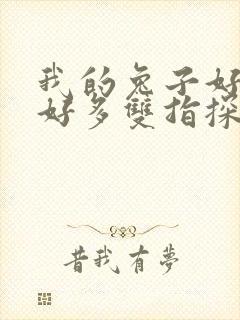 我的兔子好
好多雙指探
昔我有夢